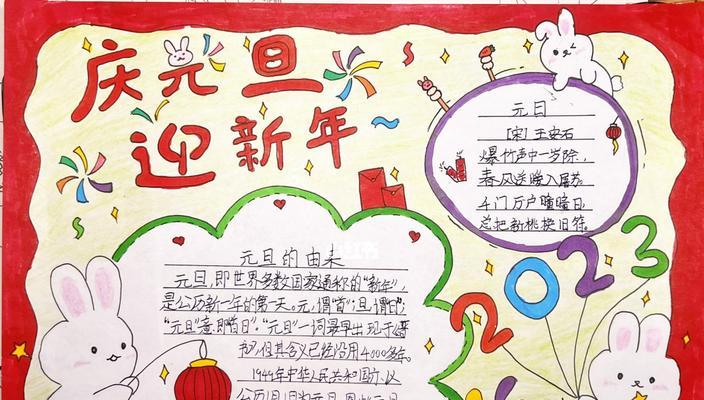 庆元旦
迎新年
元日
[宋] 王安石
爆竹声中一岁除，
春风送暖入屠苏。
千门万户曈曈日，
总把新桃换旧符。
2023
元旦的由来
元旦，即世界多数国家通称的“新年”，
是公历新一年的第一天。元，谓“首”；旦，谓“日”；
“元旦”意即“首日”。“元旦”一词最早出现于《晋
书》，但其含义已经沿用4000多年。
1949年中华人民共和国亦以